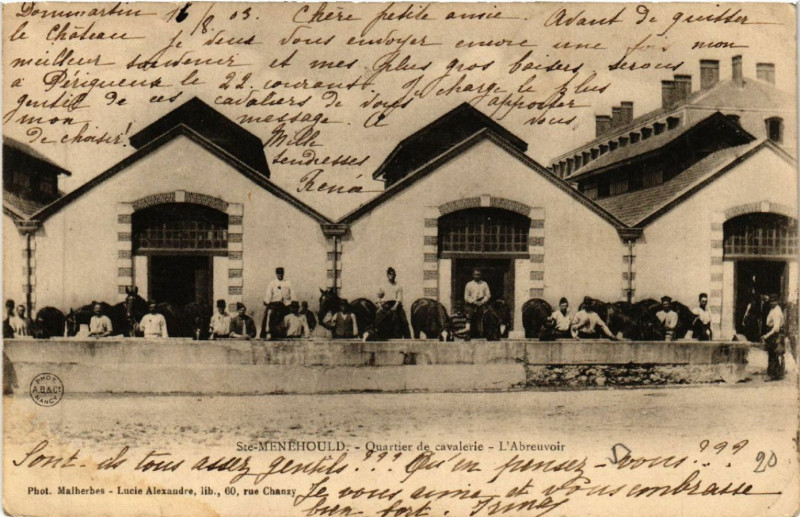 Dommartin 16/8 03. Chère petite amie. Avant de quitter
le Château je veux vous envoyer encore une fois mon
meilleur souvenir et mes plus gros baisers, serons
à Périgueux le 22 courant. Je charge le plus
gentil de ces cavaliers de vous apporter
mon message. A vous
de choisir! Mille
tendresses
Renée
PHOT
A.B & Cie
NANCY
Ste-MENEHOULD. - Quartier de cavalerie - L'Abreuvoir
Sont-ils tous assez gentils??? Qu'en pensez-vous???
20
Phot. Malherbes - Lucie Alexandre, lib., 60, rue Chanzy
Je vous aime et vous embrasse
bien fort.